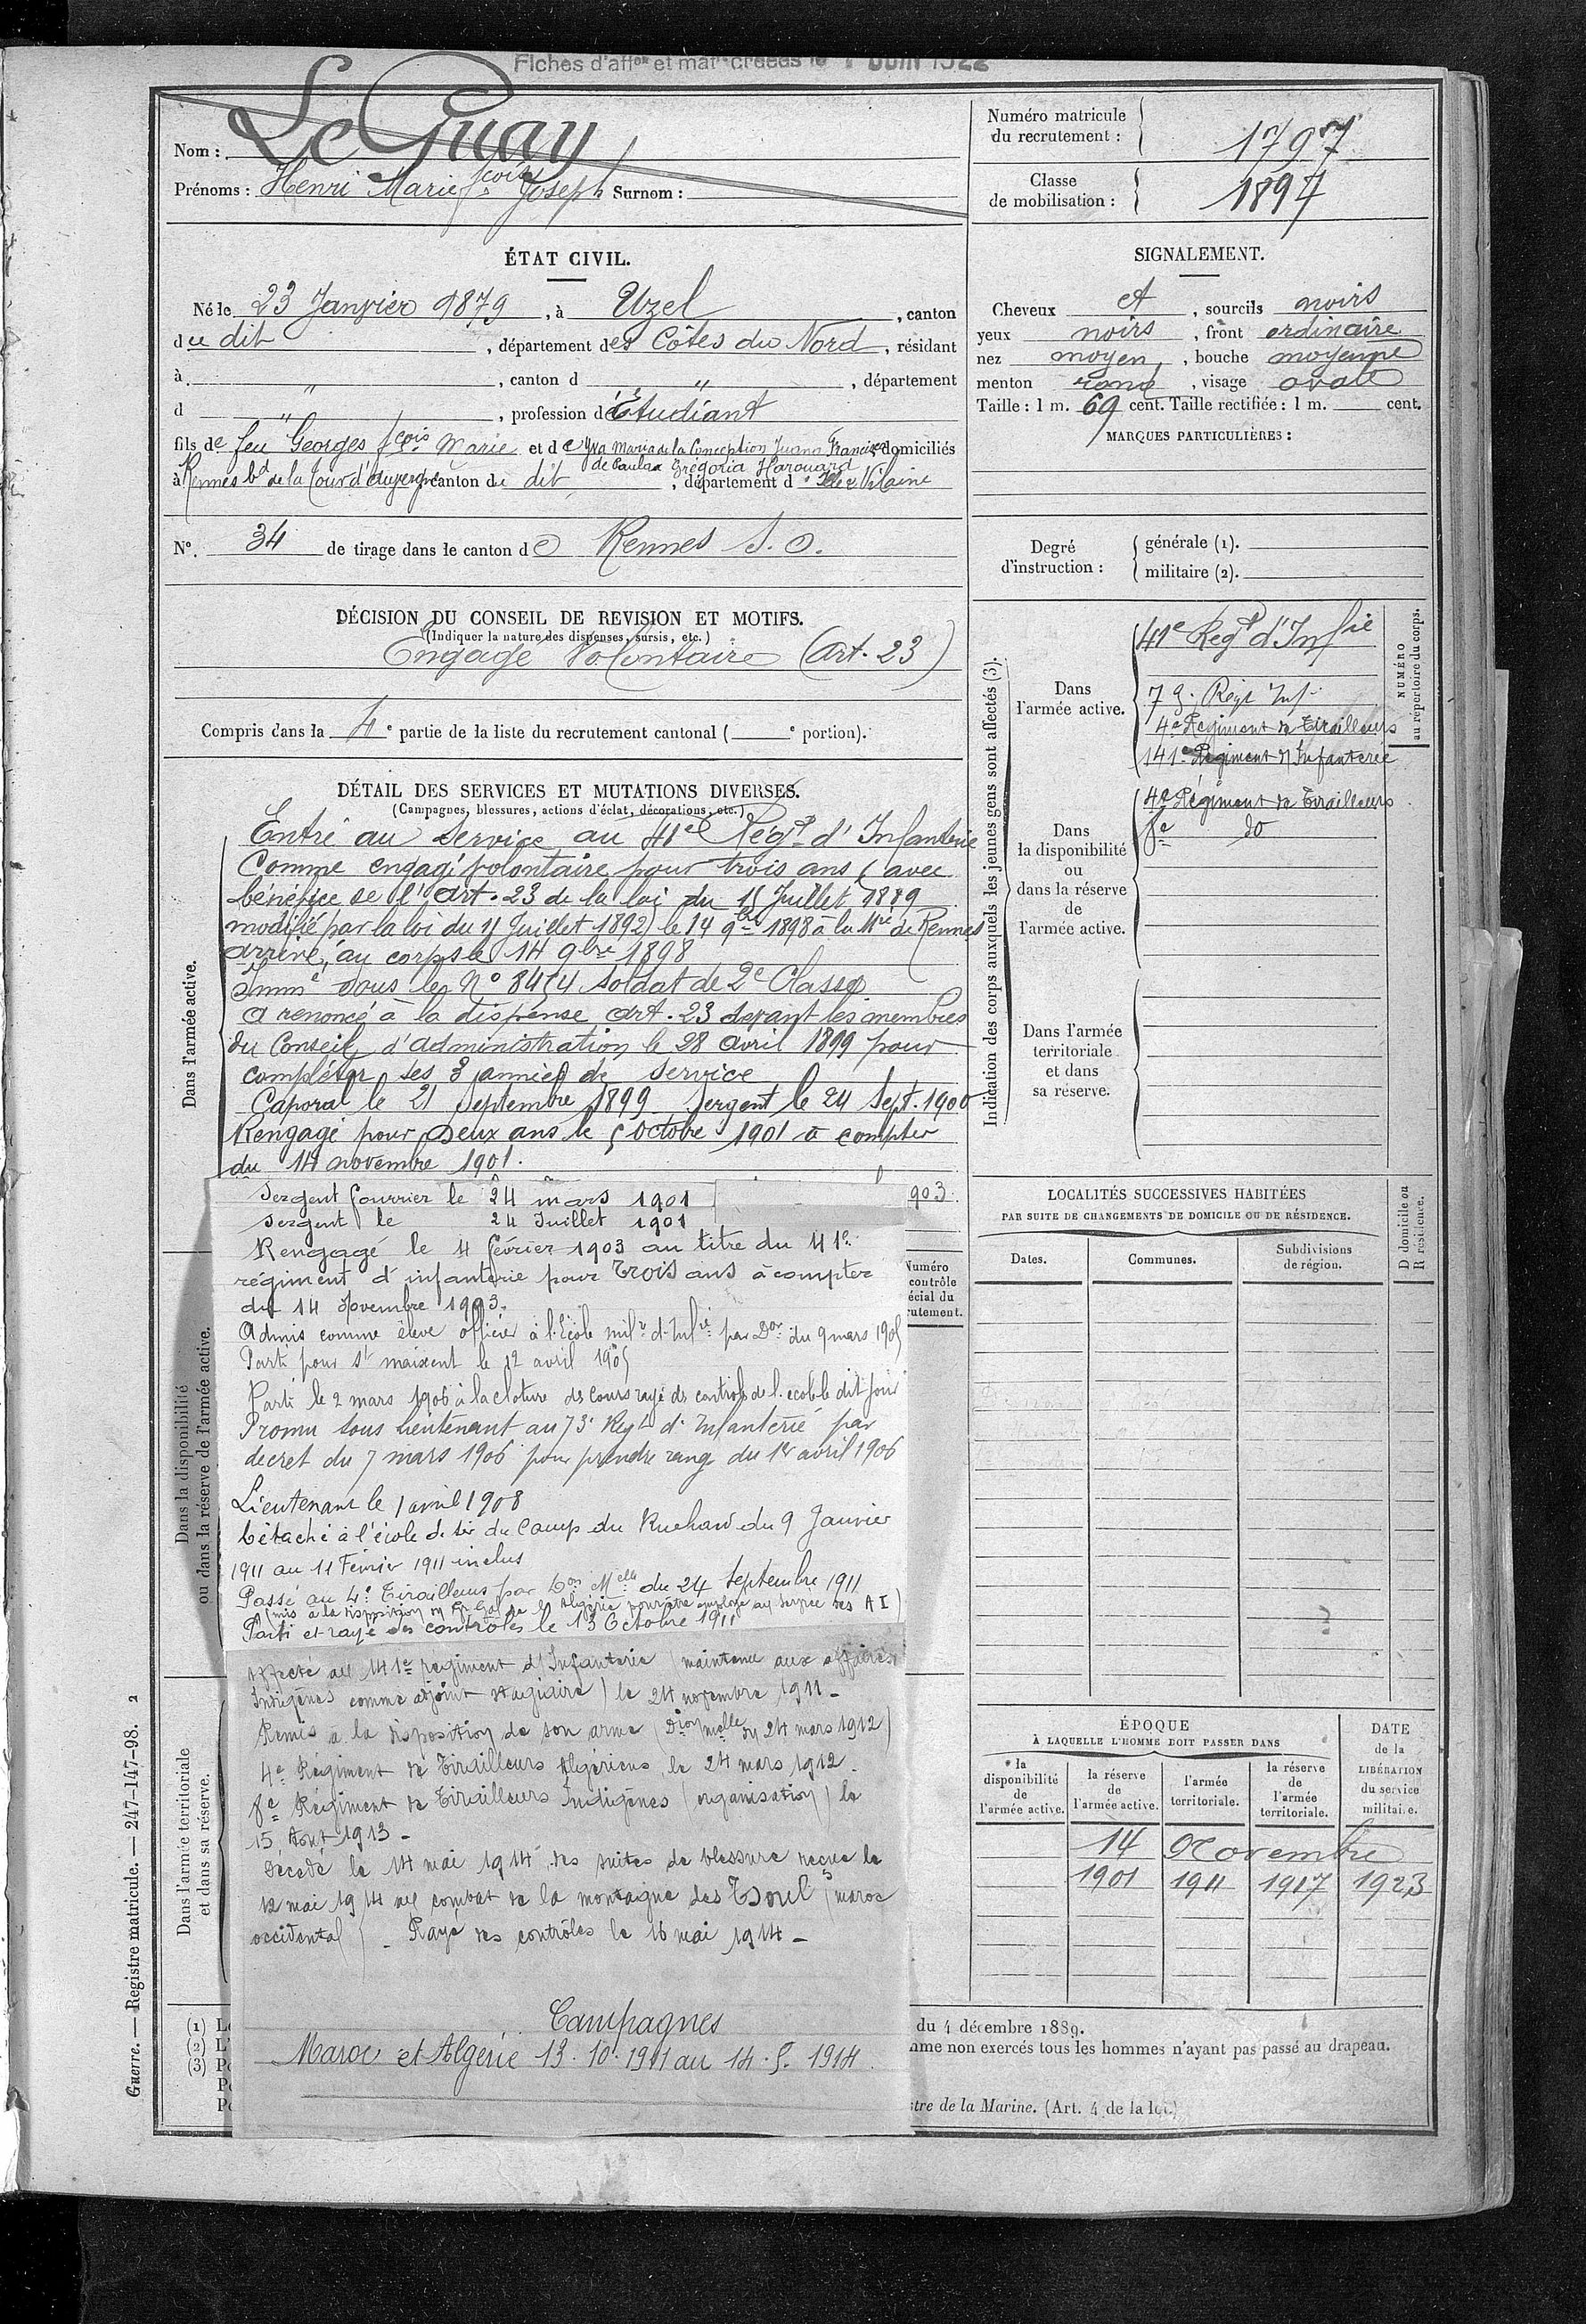 Fiches d'aff^on et mat^les créées le Juin 1922
Nom : Le Guay
Prénoms : Henri Marie f^cois Joseph Surnom :
Numéro matricule du recrutement : 1797
Classe de mobilisation : 1897
ÉTAT CIVIL.
Né le 23 Janvier 1879, à Uzel, canton
du dit, département des Côtes du Nord, résidant
à " , canton d " , département
d " , profession d'Étudiant
fils de feu Georges f^cois Marie et de Maria de la Conception Juana Francisca domiciliés
de Paula Grégoria Harouard
à Rennes b^d de la Tour d'Auvergne canton du dit, département d'Ille & Vilaine
N° 34 de tirage dans le canton de Rennes S. O.
DÉCISION DU CONSEIL DE REVISION ET MOTIFS.
(Indiquer la nature des dispenses, sursis, etc.)
Engagé Volontaire (Art. 23)
Compris dans la 4e partie de la liste du recrutement cantonal ( e portion).
DÉTAIL DES SERVICES ET MUTATIONS DIVERSES.
(Campagnes, blessures, actions d'éclat, décorations, etc.)
Dans l'armée active.
Entré au service au 41e Rég^t d'Infanterie
Comme engagé volontaire pour trois ans (avec
bénéfice de l'art. 23 de la loi du 15 Juillet 1889
modifié par la loi du 11 Juillet 1892) le 14 9bre 1898 à la M^ie de Rennes
arrivé au corps le 14 9bre 1898
Imm^é sous le N° 8454 soldat de 2e Classe
A renoncé à la dispense art. 23 devant les membres
du Conseil d'administration le 28 avril 1899 pour
compléter ses 3 années de service
Caporal le 21 Septembre 1899 Sergent le 24 Sept. 1900
Rengagé pour Deux ans le 5 Octobre 1901 à compter
du 14 novembre 1901.
903
Sergent fourrier le 24 mars 1901
Sergent le 24 Juillet 1901
Rengagé le 4 février 1903 au titre du 41e
régiment d'infanterie pour Trois ans à compter
du 14 Novembre 1903.
Admis comme élève officier à l'École mil^re d'Inf^ie par D^on du 9 mars 1905
Parti pour S^t maixent le 12 avril 1905
Parti le 2 mars 1906 à la cloture des Cours rayé des controles de l'école le dit jour
Promu sous Lieutenant au 73e Reg^t d'Infanterie par
decret du 7 mars 1906 pour prendre rang du 1er avril 1906
Lieutenant le 1 avril 1908
Détaché à l'école de tir du Camp du Ruchard du 9 Janvier
1911 au 11 Février 1911 inclus
Passé au 4e Tirailleurs par D^on M^elle du 24 Septembre 1911
(mis à la disposition du G^r G^al de l'Algérie pour être employé au service des A I)
Parti et rayé des contrôles le 13 Octobre 1911
Affecté au 141e régiment d'Infanterie (maintenu aux affaires
Indigènes comme adjoint stagiaire) le 24 novembre 1911 -
Remis à la disposition de son arme (D^ion m^elle du 24 mars 1912)
4e Régiment de Tirailleurs Algériens, le 24 mars 1912.
8e Régiment de Tirailleurs Indigènes (organisation) le
15 Aout 1913 -
Décédé le 14 mai 1914 des suites de blessure reçue le
12 mai 1914 au combat de la montagne des Tsoul (maroc
occidental) - Rayé des contrôles le 16 mai 1914 -
Campagnes
Maroc et Algérie 13.10.1911 au 14.5.1914
Dans la disponibilité
ou dans la réserve de l'armée active.
Numéro
contrôle
écial du
rutement.
Dans l'armée territoriale
et dans sa réserve.
Guerre. — Registre matricule. — 247-147-98. 2
(1) L
(2) L'
(3) P
P
P
du 4 décembre 1889.
mme non exercés tous les hommes n'ayant pas passé au drapeau.
stre de la Marine. (Art. 4 de la loi.)
SIGNALEMENT.
Cheveux et, sourcils noirs
yeux noirs, front ordinaire
nez moyen, bouche moyenne
menton rond, visage ovale
Taille : 1 m. 69 cent. Taille rectifiée : 1 m. cent.
MARQUES PARTICULIÈRES :
Degré d'instruction :
générale (1).
militaire (2).
Indication des corps auxquels les jeunes gens sont affectés (3).
NUMÉRO
au répertoire du corps.
Dans l'armée active.
41e Rég^t d'Inf^ie
73e Régt Inf.
4e Régiment de Tirailleurs
141e Régiment d'Infanterie
Dans la disponibilité ou dans la réserve de l'armée active.
4e Régiment de Tirailleurs
8e do
Dans l'armée territoriale et dans sa réserve.
LOCALITÉS SUCCESSIVES HABITÉES
PAR SUITE DE CHANGEMENTS DE DOMICILE OU DE RÉSIDENCE.
Dates.
Communes.
Subdivisions de région.
D domicile ou
R résidence.
ÉPOQUE
À LAQUELLE L'HOMME DOIT PASSER DANS
la disponibilité de l'armée active.
la réserve de l'armée active.
l'armée territoriale.
la réserve de l'armée territoriale.
DATE de la LIBÉRATION du service militaire.
14 Novembre
1901 1911 1917 1923